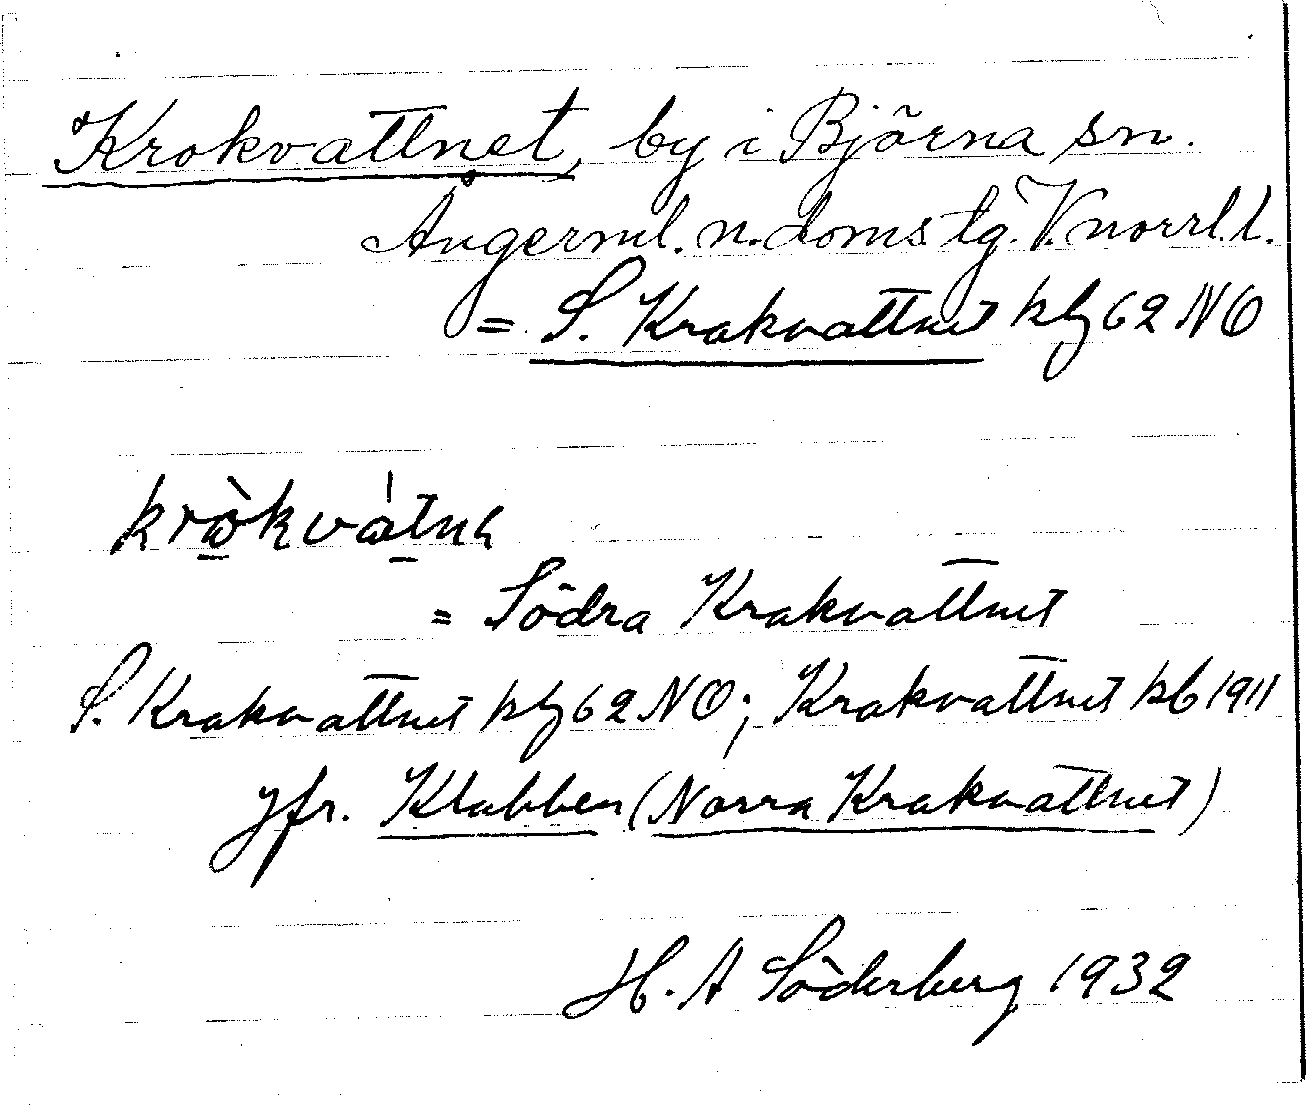 Krokvattnet, by i Björna sn.
Ångerml. n. doms tg. V. norrl. l.
= S. Krakvattnet kbl 62 NO
kròkvàtnɩ
= Södra Krakvattnet
S. Krakvattnet kbl 62 NO; Krakvattnet kb 1911
jfr. Klubben (Norra Krakvattnet)
H. A Söderberg 1932